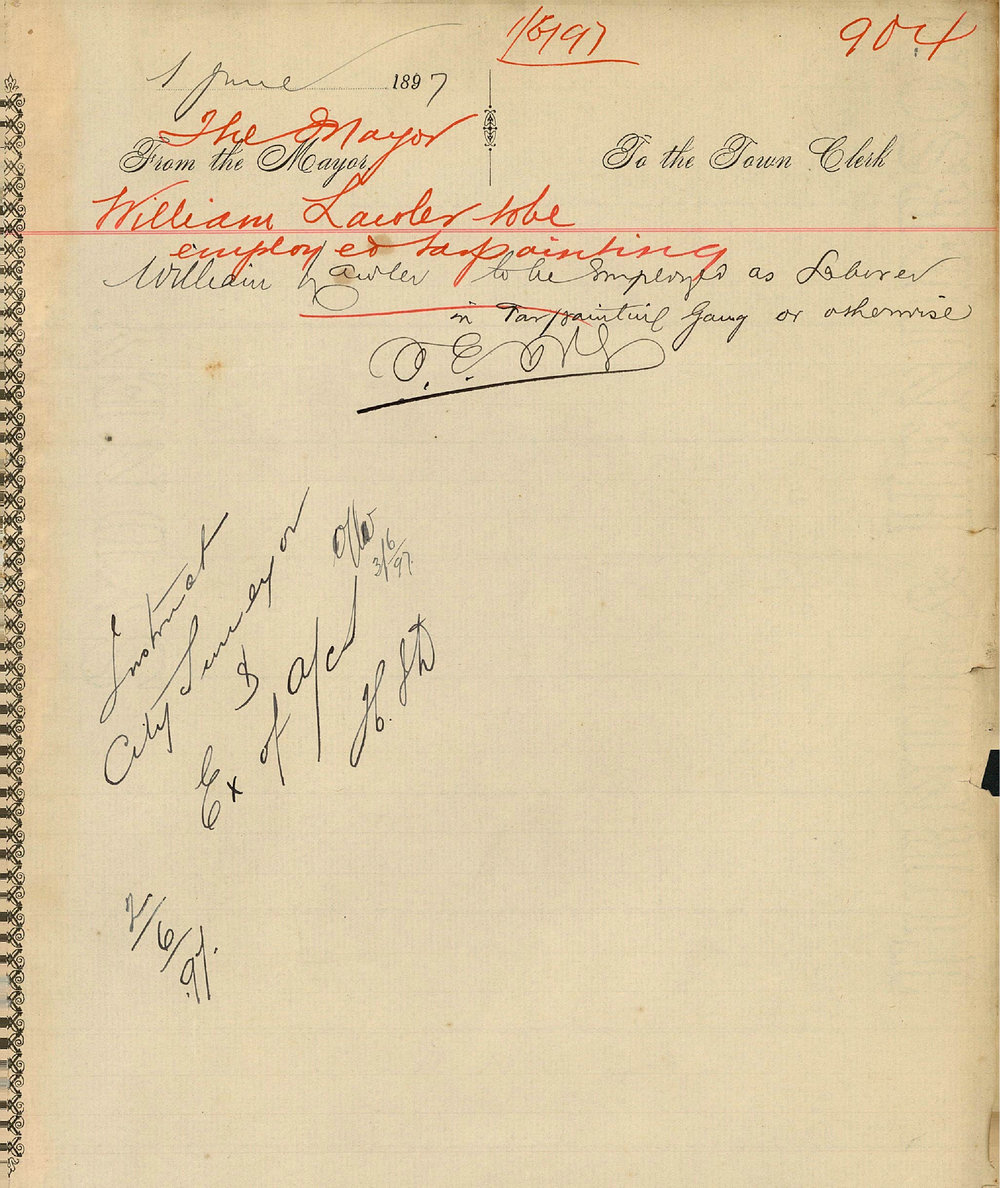 1/6/97
904
1 June 1897
The Mayor
From the Mayor. To the Town Clerk
William Lawler to be
employed tarpainting
William Lawler to be Employed as Laborer
in Tarpainting Gang or otherwise
Instruct
City Surveyor
&
Ex of a/cs
3/6/97.
2/6/97.